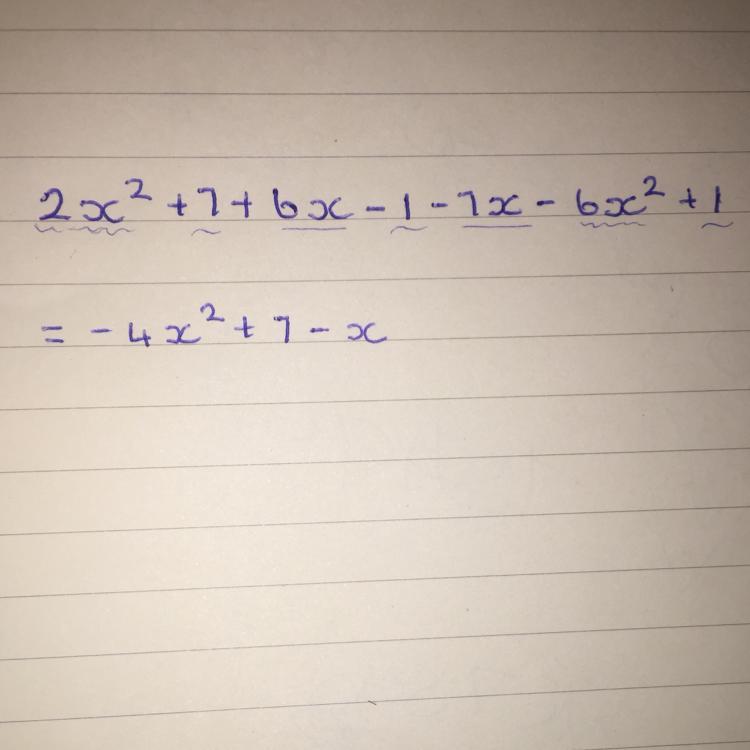 2x² + 7 + 6x - 1 - 7x - 6x² + 1
= -4x² + 7 - x